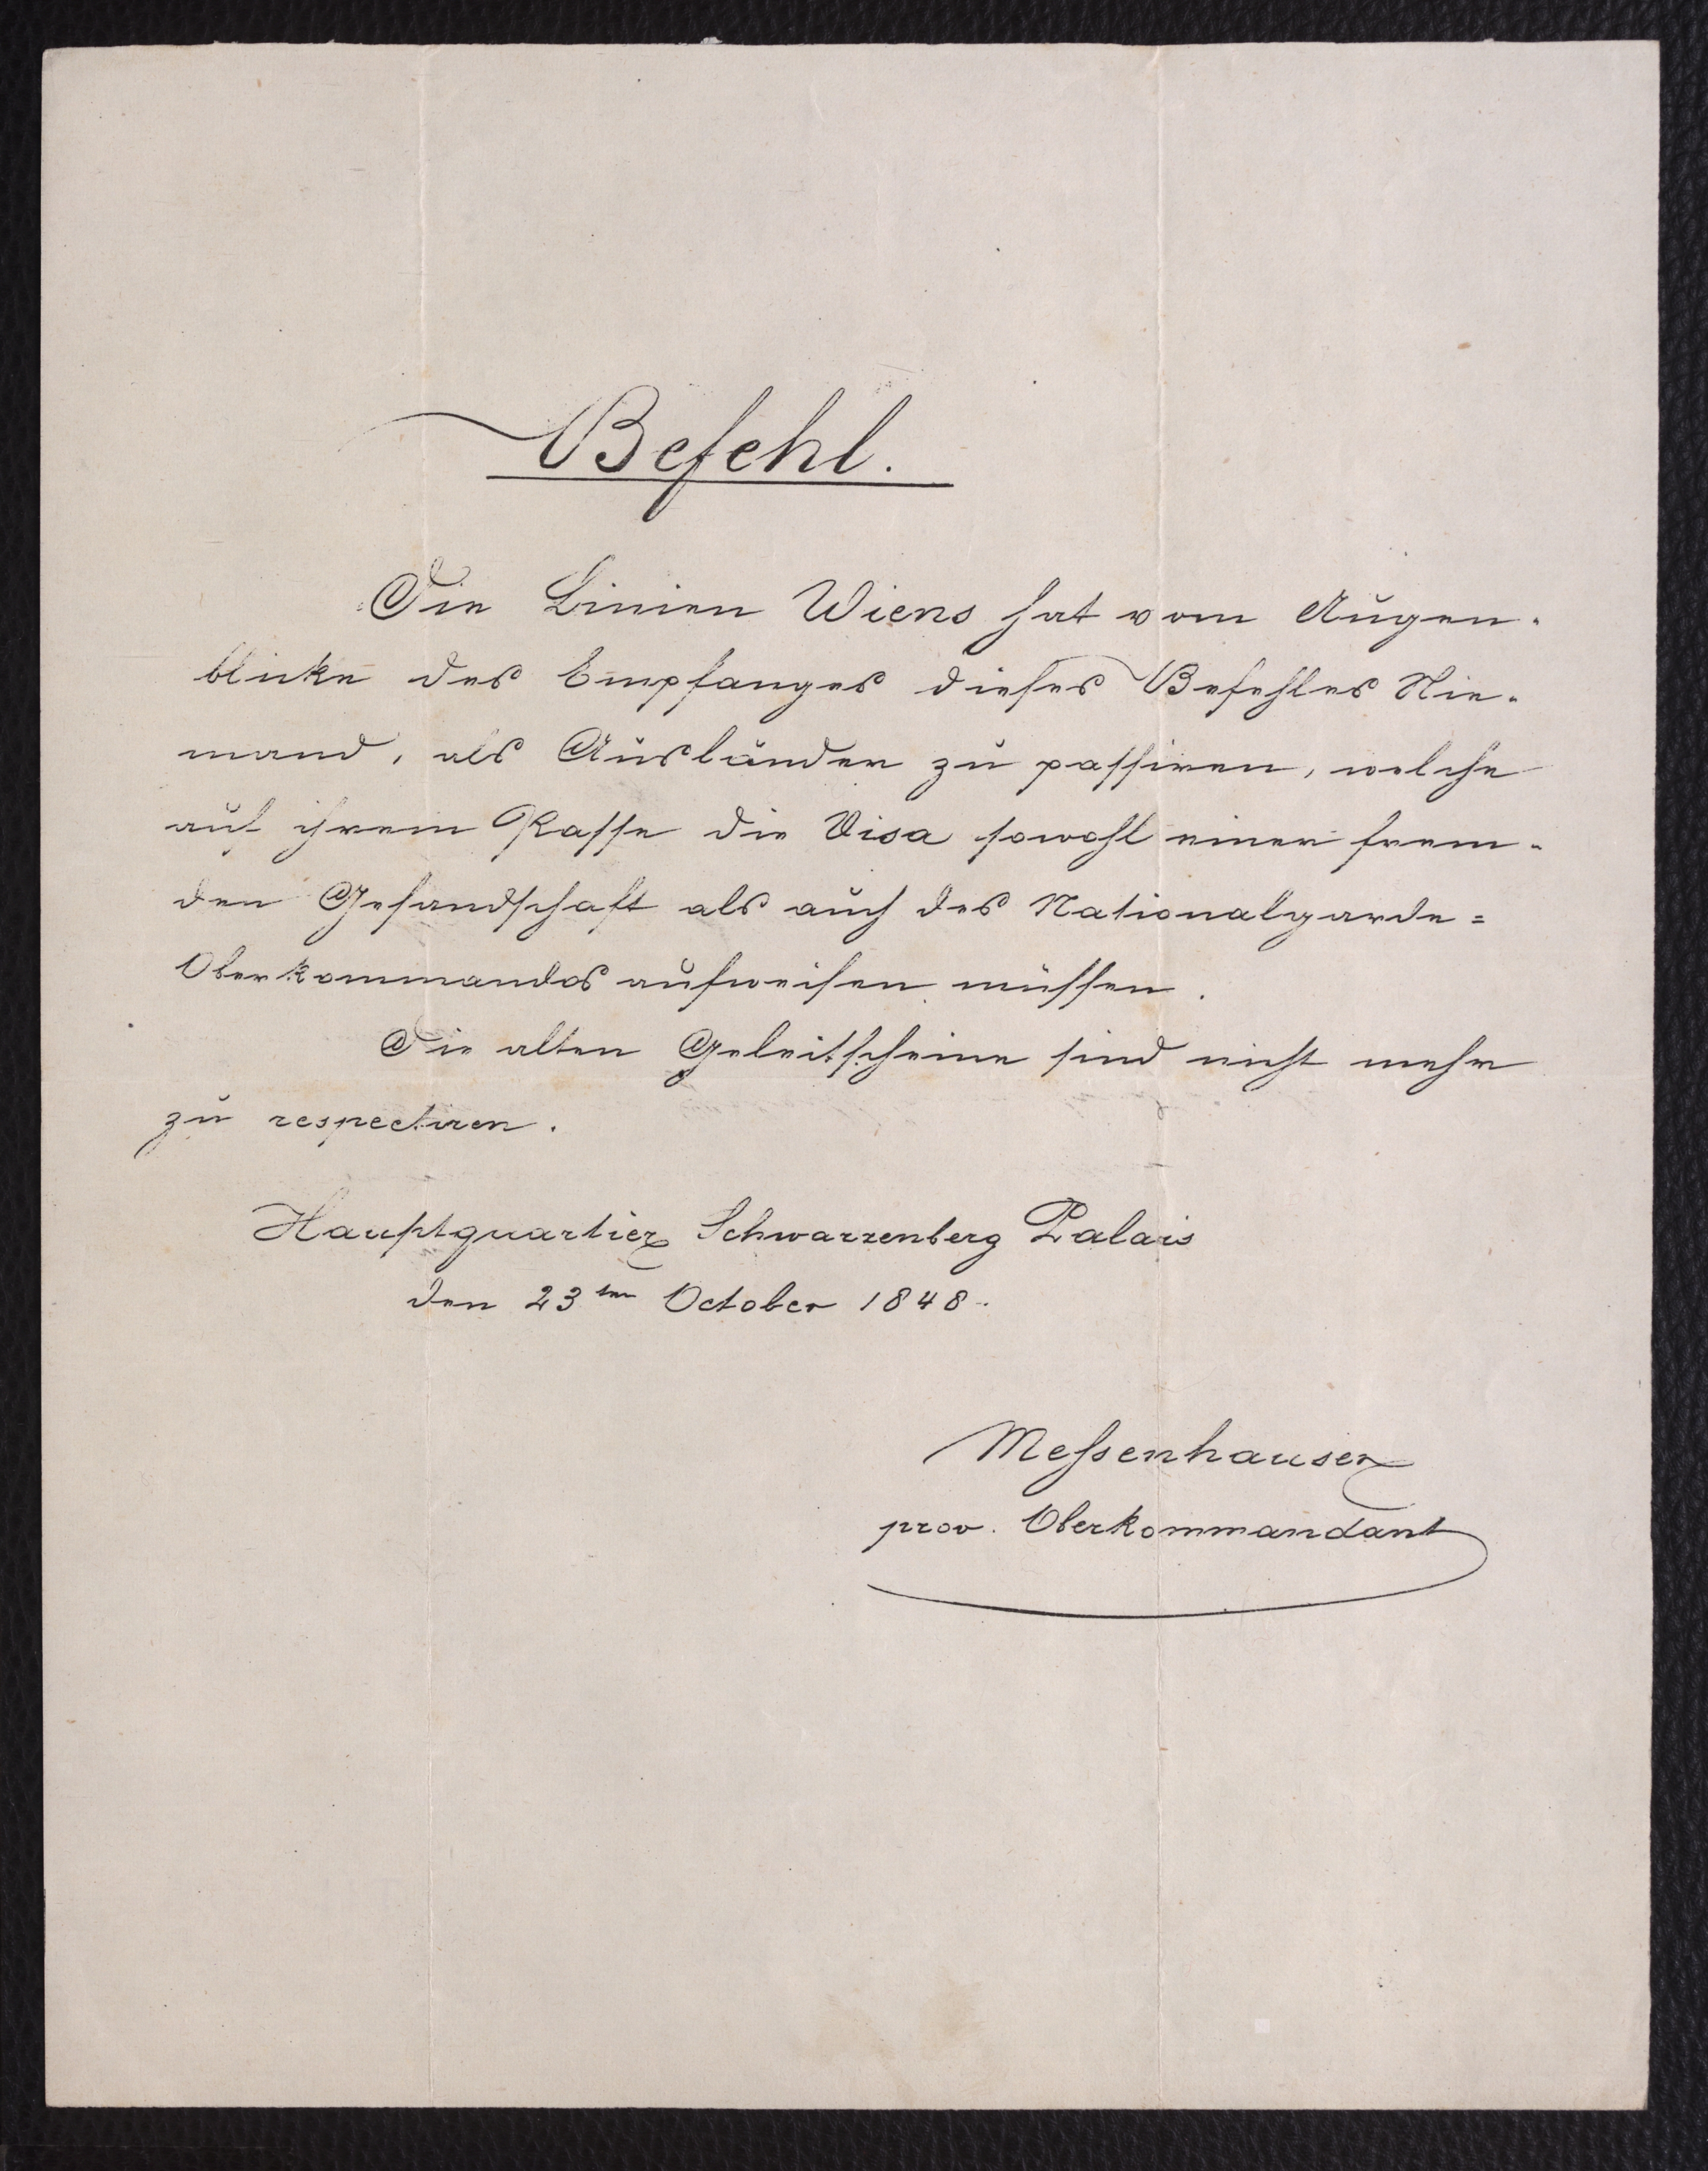 Befehl.
Die Linien Wiens hat vom Augen-
blicke des Empfanges dieses Befehles Nie-
mand, als Ausländer zu passiren, welche
auf ihrem Passe die Visa sowohl einer frem-
den Gesandschaft als auch des Nationalgarde=
Oberkommandos aufweisen müssen.
Die alten Geleitscheine sind nicht mehr
zu respectiren.
Hauptquartier Schwarzenberg Palais
den 23ten October 1848.
Messenhauser
prov. Oberkommandant